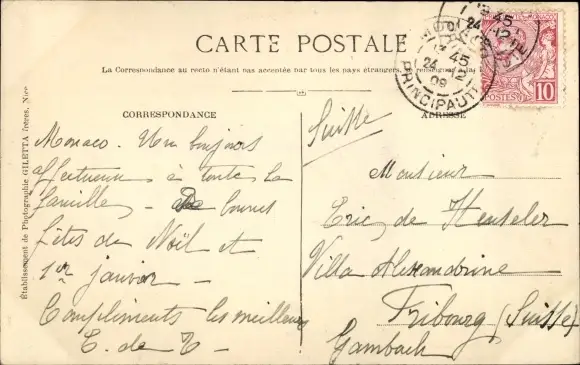 CARTE POSTALE
La Correspondance au recto n'étant pas acceptée par tous les pays étrangers,
CORRESPONDANCE
ADRESSE
Établissement de Photographie GILETTA frères, Nice
Monaco. Un toujours
affectueux à toute la
famille - bonnes
fêtes de Noël et
1er janvier -
Compliments les meilleurs
E. de T -
Suisse
Monsieur
Eric de Henseler
Villa Alexandrine
Fribourg (Suisse)
Gambach
45
24 12
09
PRINCIPAUTÉ
45
24 12
POSTES
10